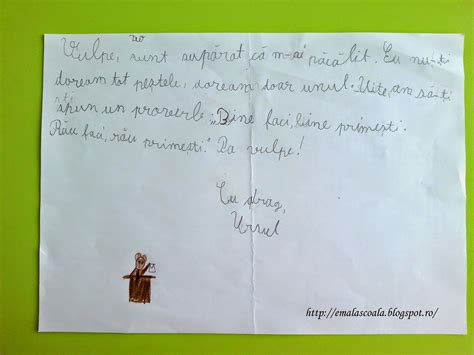 Vulpe, sunt supărat că m-ai păcălit. Eu nu-ți
doream tot peștele, doream doar unul. Uite, am să-ți
spun un proverb: „Bine faci, bine primești.
Rău faci, rău primești." Pa vulpe!
Cu drag,
Ursul
http://emalascoala.blogspot.ro/